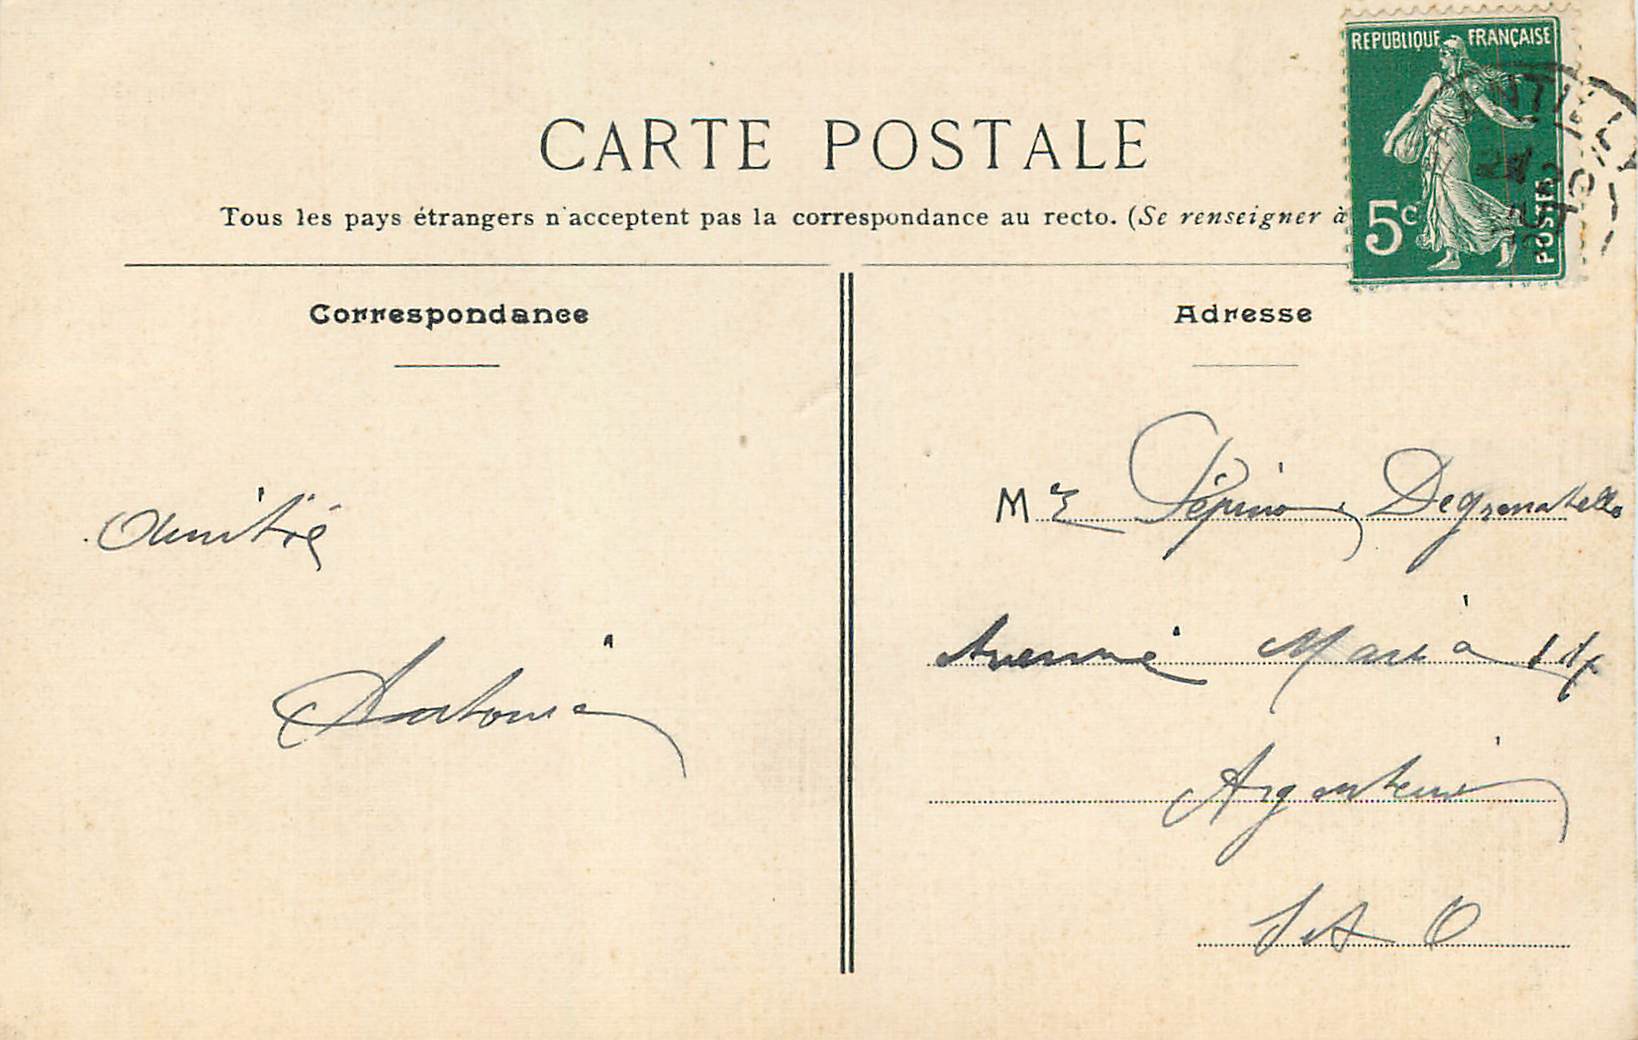 CARTE POSTALE
Tous les pays étrangers n'acceptent pas la correspondance au recto. (Se renseigner à
REPUBLIQUE FRANÇAISE
5c
POSTES
Correspondance
Amitié
Antonia
Adresse
M Pépino Degrenatello
Avenue Maria
Argenteuil
S et O